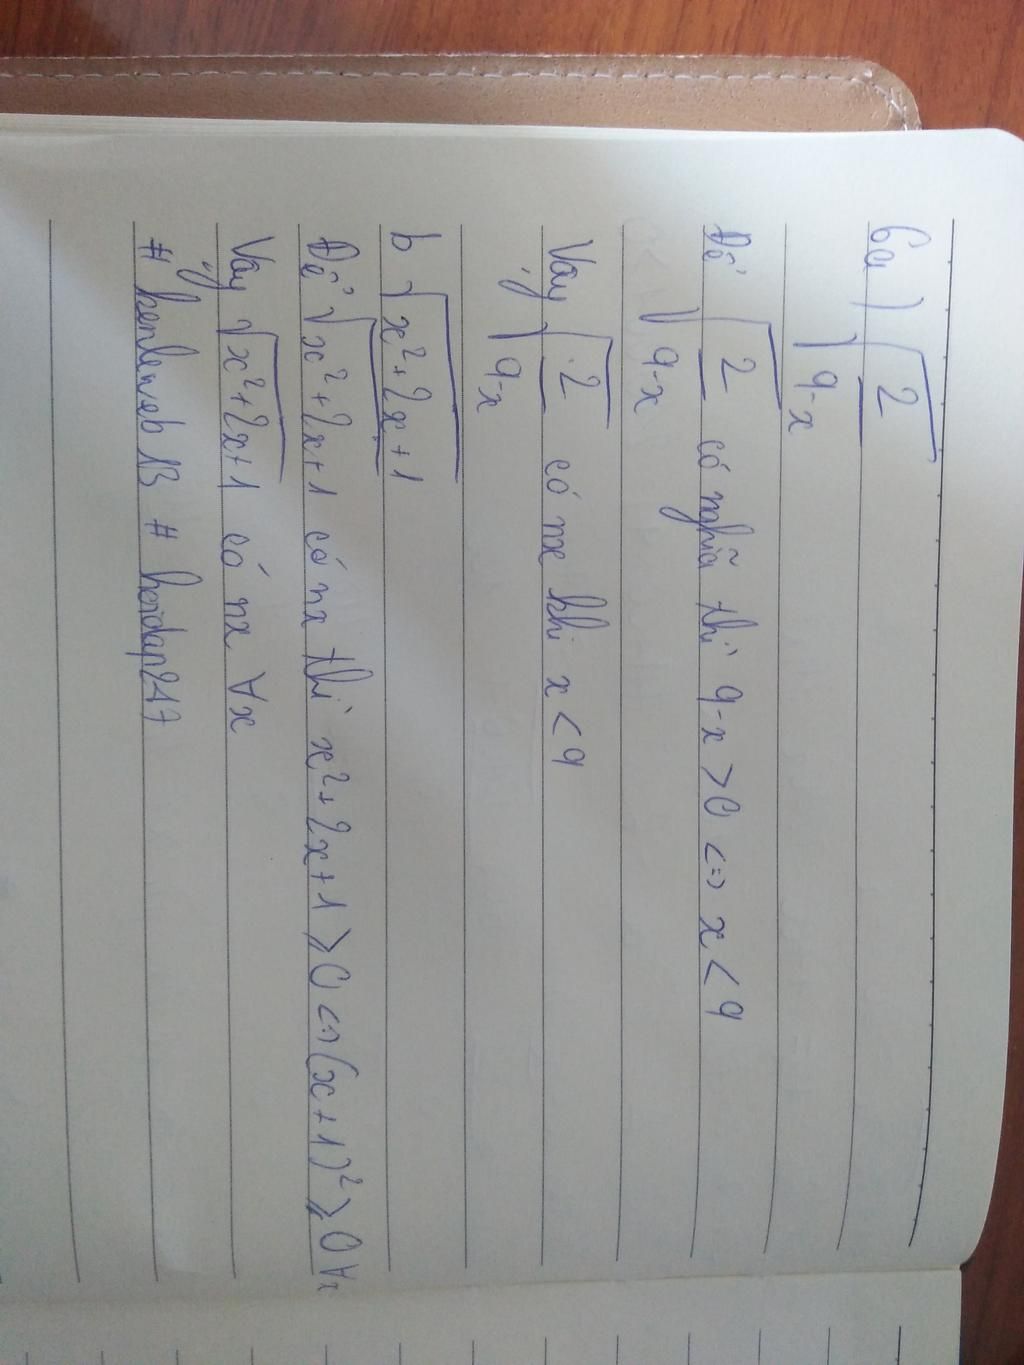 6a) √(2/(9-x))
Để √(2/(9-x)) có nghĩa thì 9-x > 0 <=> x < 9
Vậy √(2/(9-x)) có nx khi x < 9
b √(x²+2x+1)
Để √(x²+2x+1) có nx thì x²+2x+1 ⩾ 0 <=> (x+1)² ⩾ 0 ∀x
Vậy √(x²+2x+1) có nx ∀x
# kenleweb 13 # hoidap247